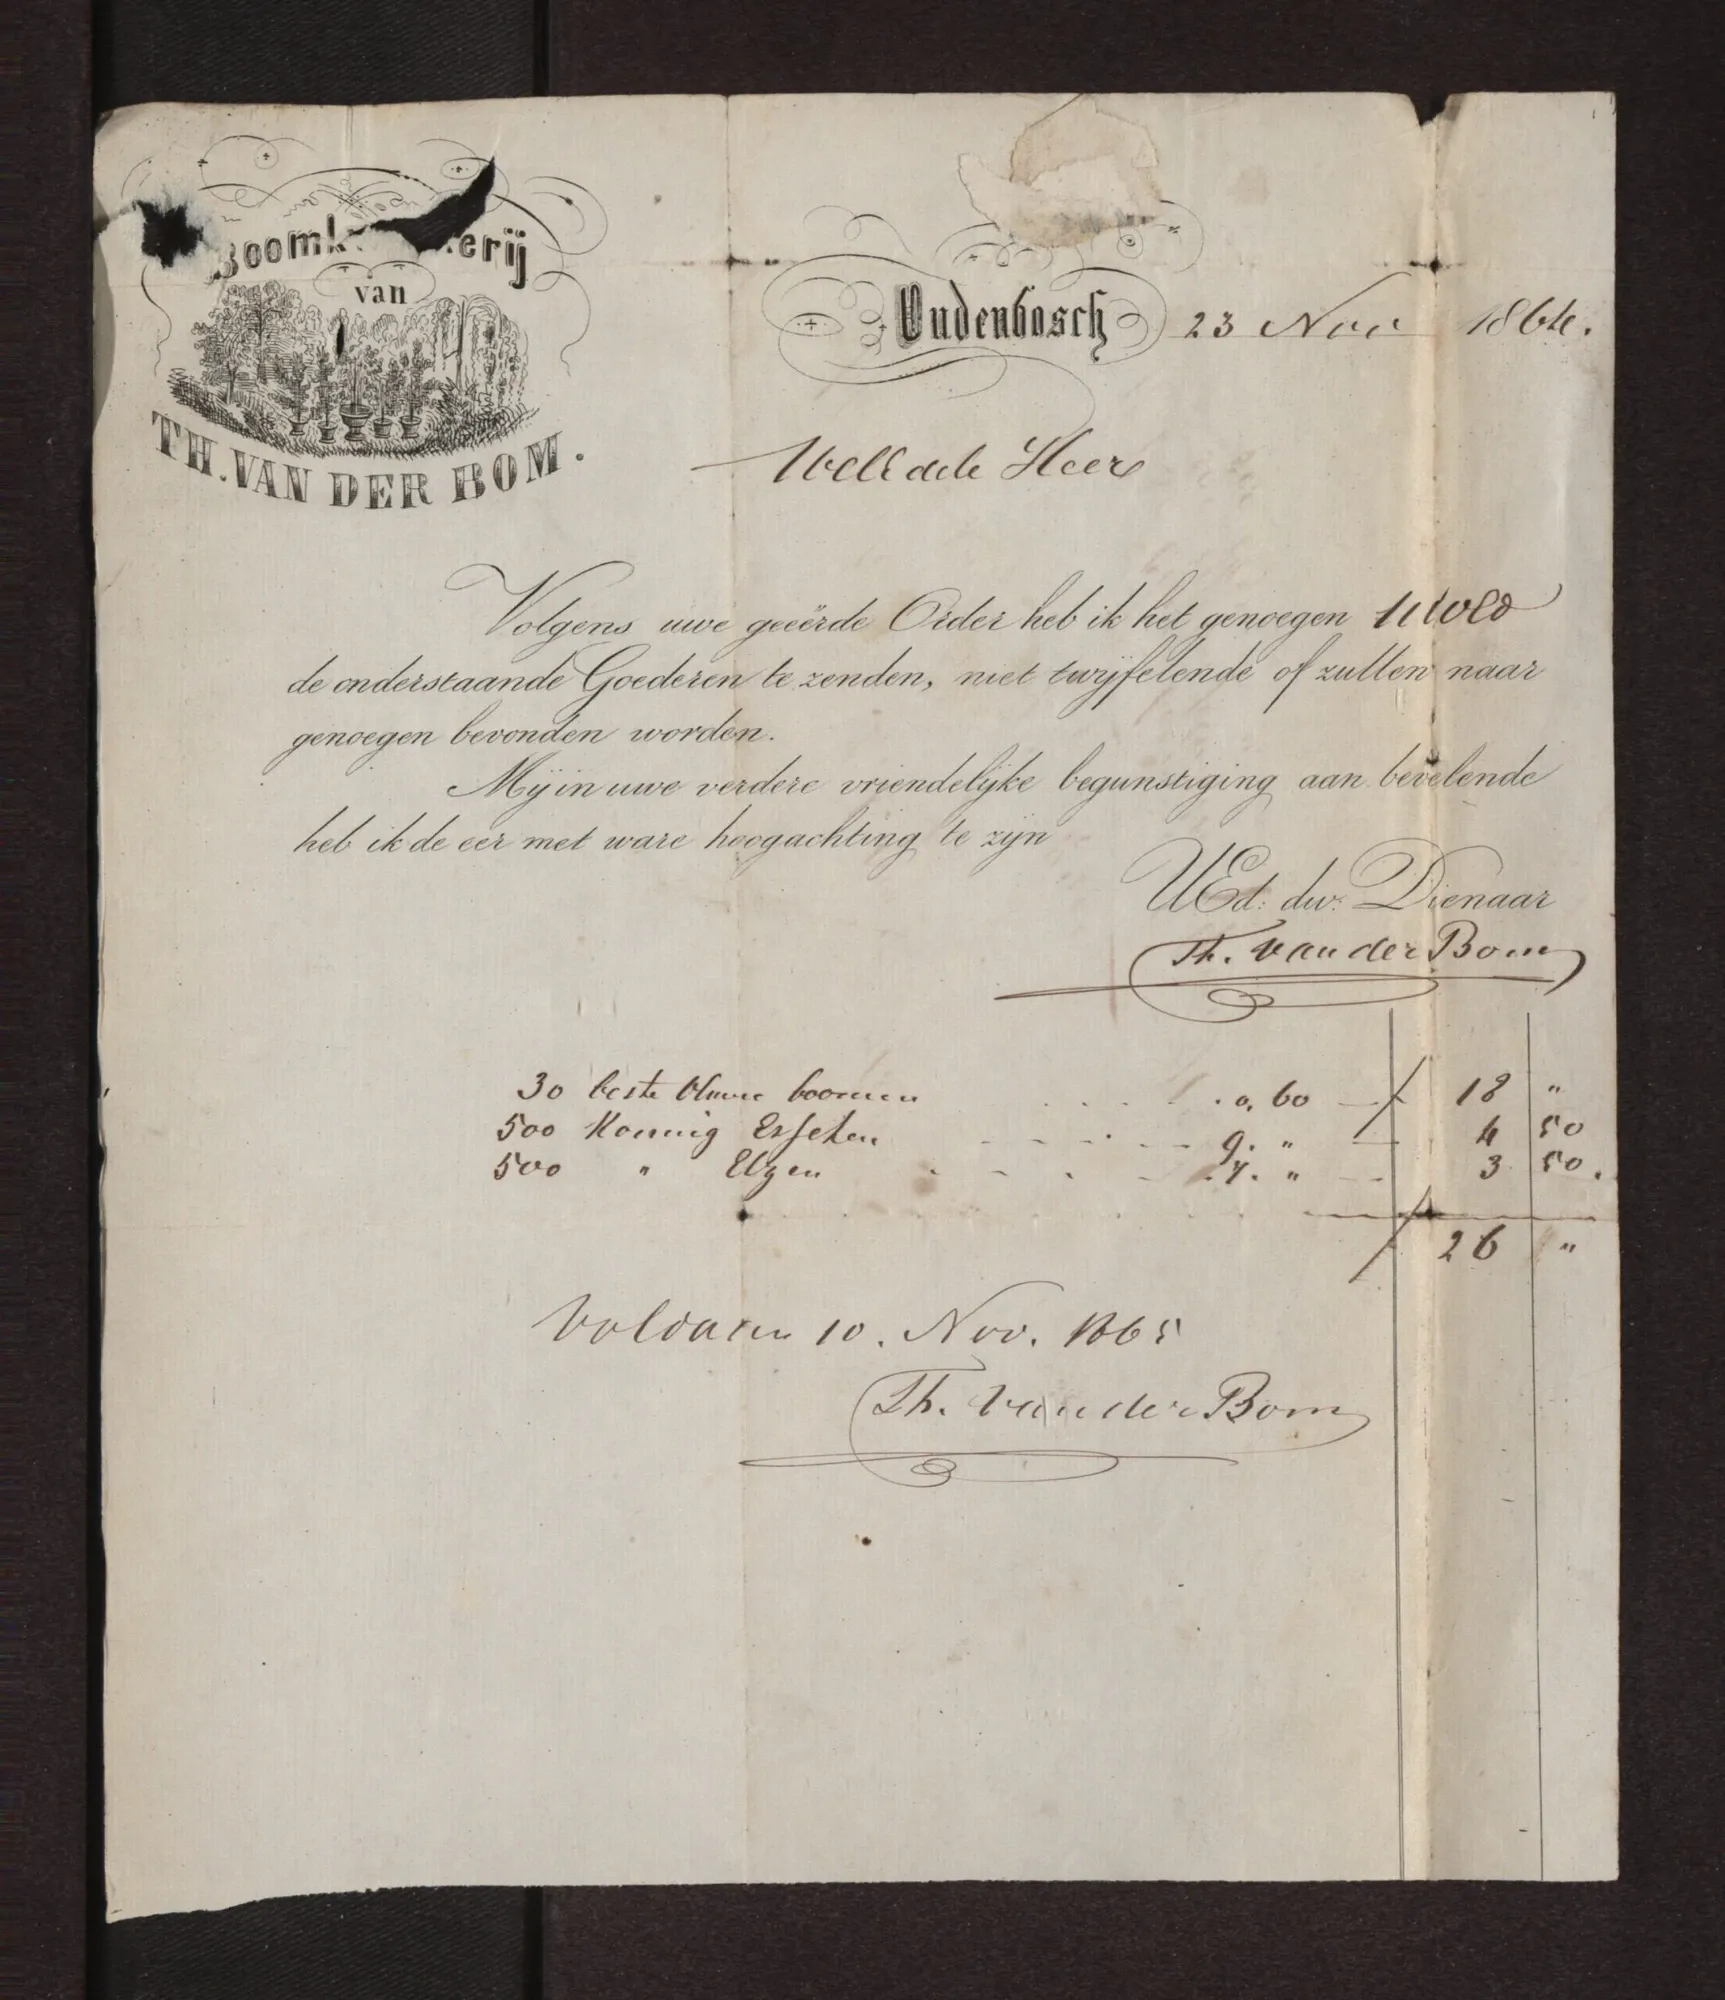 Boomk erij
van
TH. VAN DER BOM.
Oudenbosch 23 Nov 1864.
WelEdele Heer
Volgens uwe geëerde Order heb ik het genoegen UWEd
de onderstaande Goederen te zenden, niet twijfelende of zullen naar
genoegen bevonden worden.
Mij in uwe verdere vriendelijke begunstiging aan bevelende
heb ik de eer met ware hoogachting te zijn
UEd: dw: Dienaar
Th. van der Bom
30 beste boomen 0,60 ƒ 18 "
500 Essche 9. " 4 50
500 " Elzen 7. " 3 50.
ƒ 26 "
Voldaan 10. Nov. 1865
Th. van der Bom